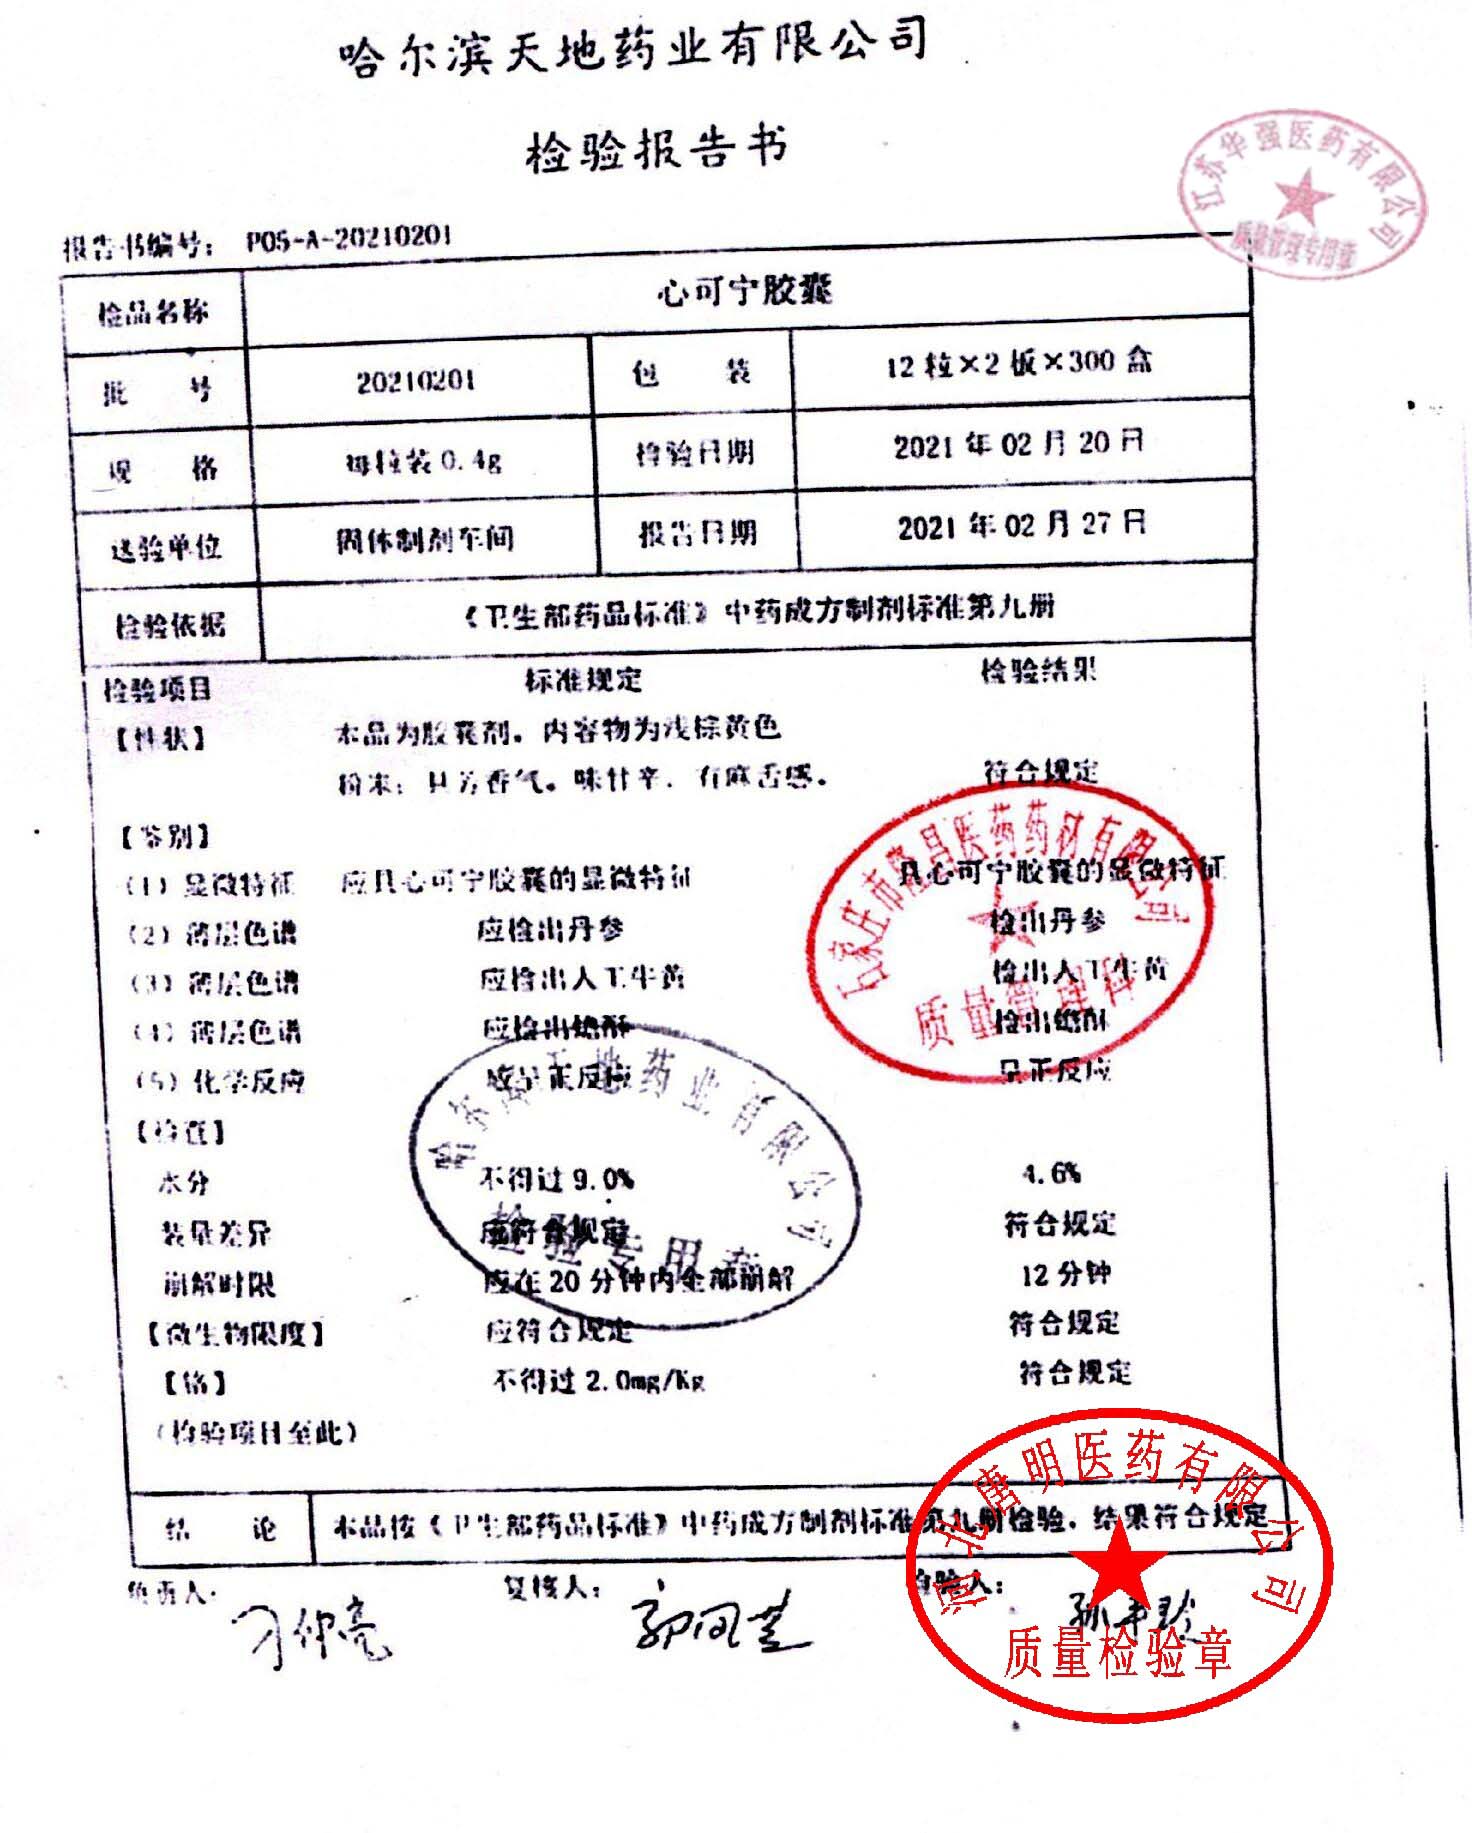 哈尔滨天地药业有限公司
检验报告书
江苏华强医药有限公司
质量管理专用章
报告书编号： P05-A-20210201
检品名称 心可宁胶囊
批 号 20210201 包 装 12粒×2板×300盒
规 格 每粒装0.4g 检验日期 2021年02月20日
送验单位 固体制剂车间 报告日期 2021年02月27日
检验依据 《卫生部药品标准》中药成方制剂标准第九册
检验项目 标准规定 检验结果
【性状】 本品为胶囊剂。内容物为浅棕黄色
粉末；具芳香气。味甘辛、有麻舌感。 符合规定
【鉴别】
（1）显微特征 应具心可宁胶囊的显微特征 具心可宁胶囊的显微特征
（2）薄层色谱 应检出丹参 检出丹参
（3）薄层色谱 应检出人工牛黄 检出人工牛黄
（4）薄层色谱 应检出蟾酥 检出蟾酥
（5）化学反应 应呈正反应 呈正反应
石家庄市隆昌医药药材有限公司
质量管理科
哈尔滨天地药业有限公司
检验专用章
【检查】
水分 不得过9.0% 4.6%
装量差异 应符合规定 符合规定
崩解时限 应在20分钟内全部崩解 12分钟
【微生物限度】 应符合规定 符合规定
【铬】 不得过2.0mg/Kg 符合规定
（检验项目至此）
结 论 本品按《卫生部药品标准》中药成方制剂标准第九册检验，结果符合规定
负责人： 复核人： 检验人：
河北唐明医药有限公司
质量检验章